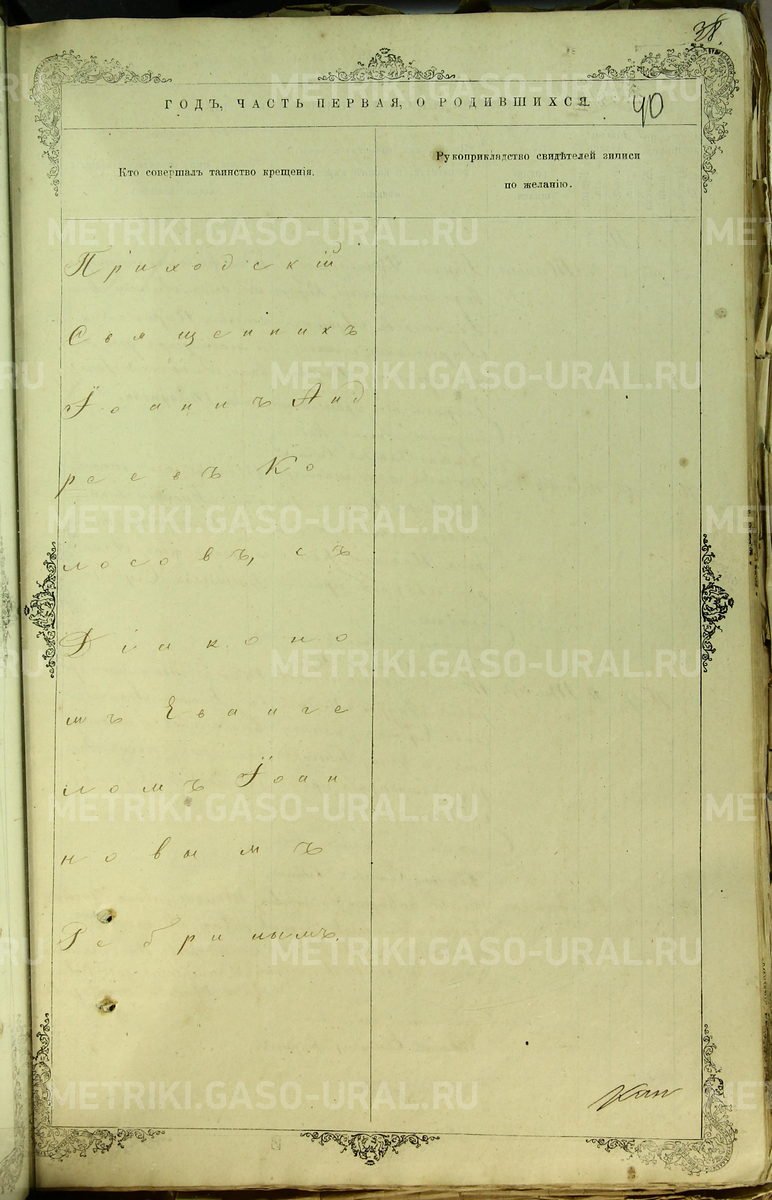 38.
40
ГОДЪ, ЧАСТЬ ПЕРВАЯ, О РОДИВШИХСЯ.
Кто совершалъ таинство крещенія.
Рукоприкладство свидѣтелей записи
по желанію.
Приходскій
Священникъ
Іоаннъ Анд
реевъ Ко
лосовъ, съ
Діаконо
мъ Еванге
ломъ Іоан
новымъ
METRIKI.GASO-URAL.RU